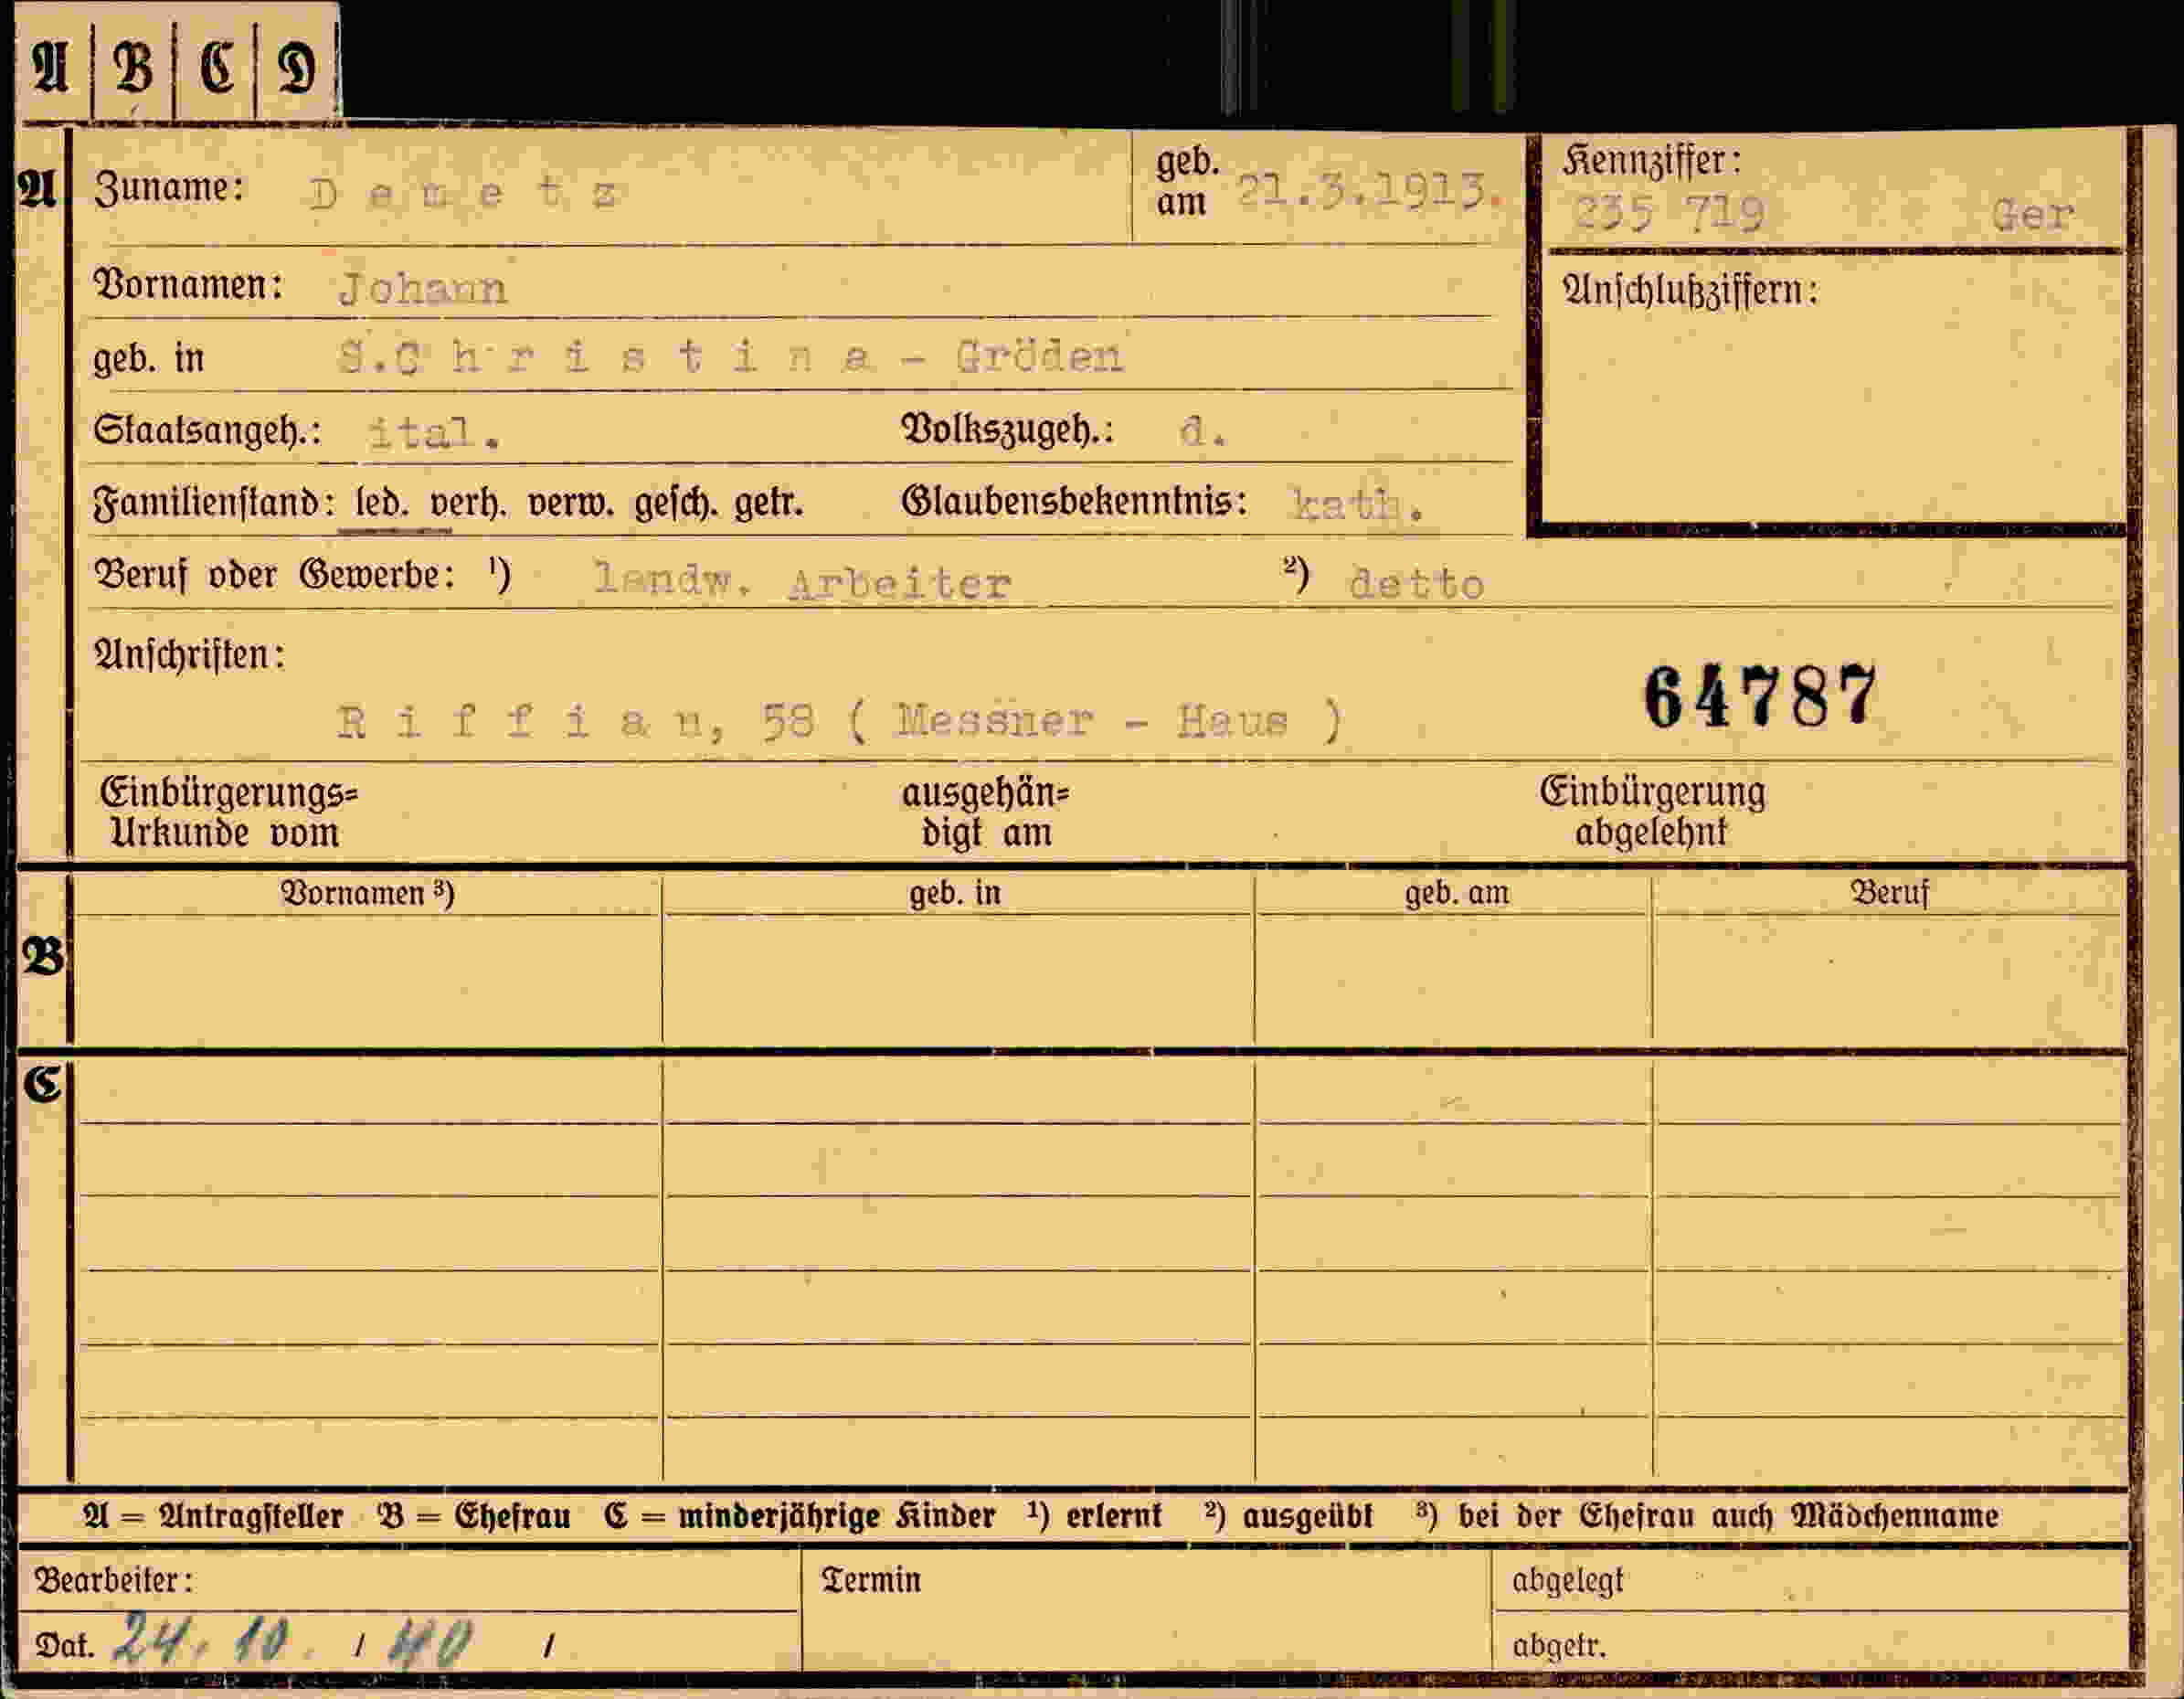 A B C D
A Zuname: D e m e t z geb. am 21.3.1913. Kennziffer:
235 719 Ger
Vornamen: Johann Anschlußziffern:
geb. in S.C h r i s t i n a - Gröden
Staatsangeh.: ital. Volkszugeh.: d.
Familienstand: led. verh. verw. gesch. getr. Glaubensbekenntnis: kath.
Beruf oder Gewerbe: ¹) landw. Arbeiter ²) detto
Anschriften:
64787
R i f f i a n, 58 ( Messner - Haus )
Einbürgerungs= ausgehän= Einbürgerung
Urkunde vom digt am abgelehnt
Vornamen ³) geb. in geb. am Beruf
B
C
A = Antragsteller B = Ehefrau C = minderjährige Kinder ¹) erlernt ²) ausgeübt ³) bei der Ehefrau auch Mädchenname
Bearbeiter: Termin abgelegt
Dat. 24. 10. / 40 / abgetr.